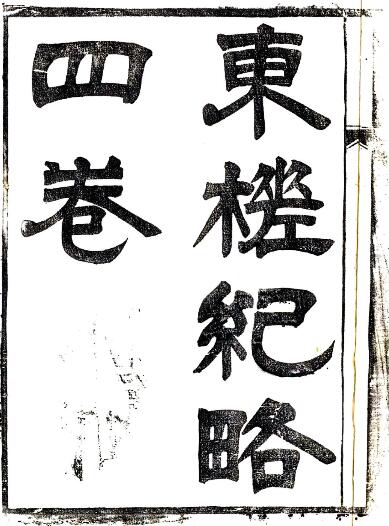 東槎紀略
四卷